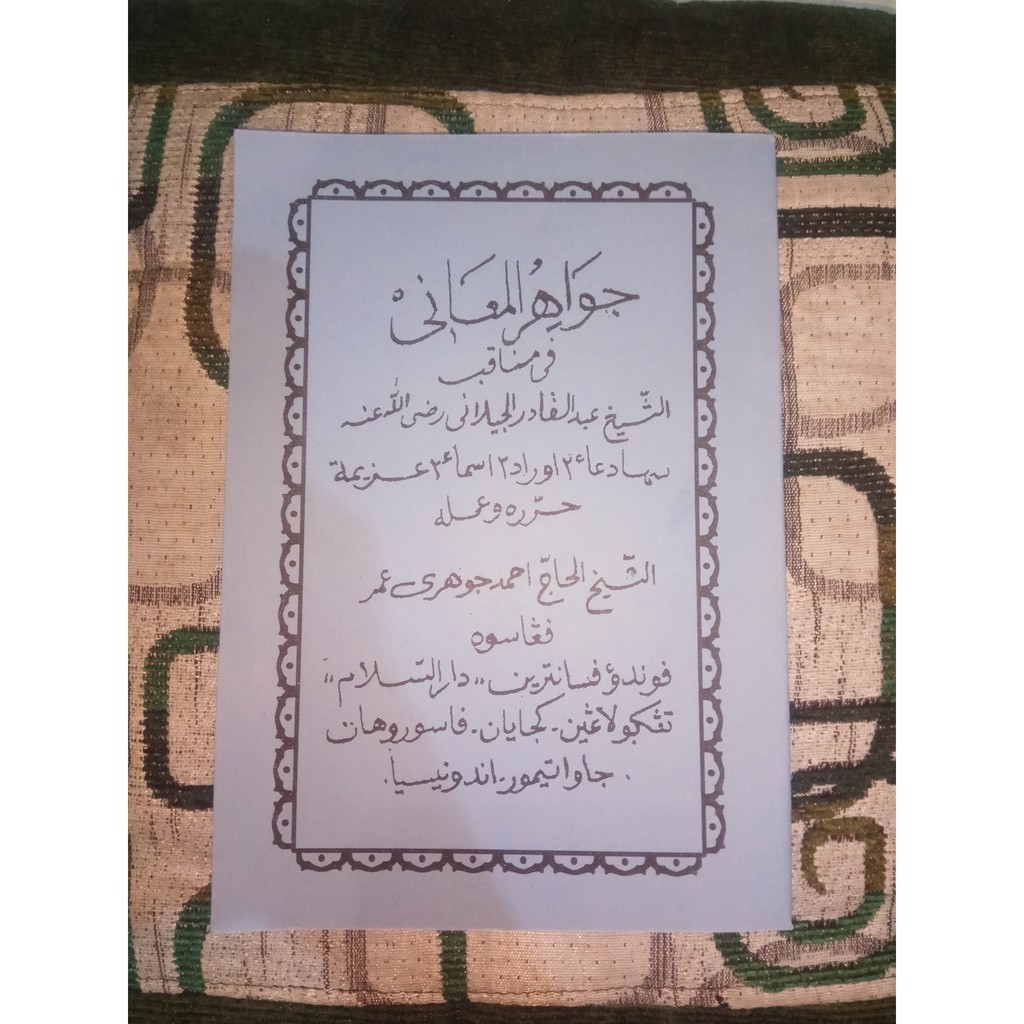 جَوَاهِرُ الْمَعَانِىْ
فى مناقب
الشّيخ عبد القادر الجيلانى رضى الله عنه
سها دعاء٢ اوراد٢ اسماء٢ عزيمة
حرّره وعمله
الشّيخ الحاجّ احمد جوهرى عمر
ڤڠاسوه
فوندؤ فسانترين ,, دار السّلام ,,
تڠكولاڠين - كجايان - فاسوروهان
. جاوا تيمور - اندونيسيا .